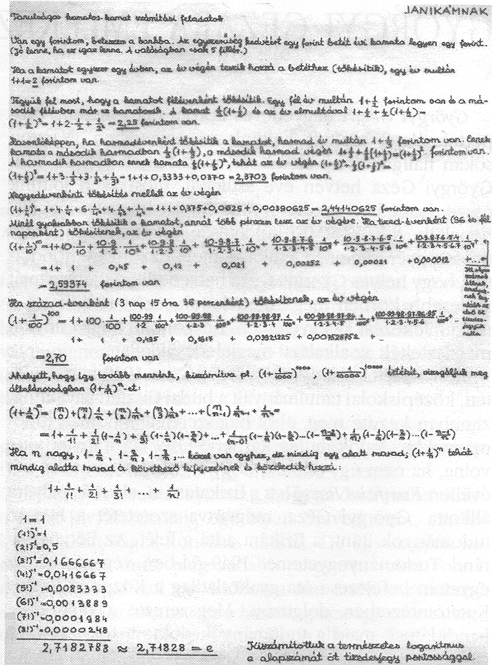 JANIKÁMNAK
Tanulságos kamatos-kamat számítási feladatok
Van egy forintom, beteszem a bankba. Az egyszerűség kedvéért egy forint betét évi kamata legyen egy forint.
(Jó lenne, ha ez igaz lenne. A valóságban csak 5 fillér.)
Ha a kamatot egyszer egy évben, az év végén teszik hozzá a betéthez (tőkésítik), egy év multán
1+1=2 forintom van.
Tegyük fel most, hogy a kamatot félévenként tőkésítik. Egy fél év multán 1+½ forintom van és a má-
sodik félévben már ez kamatozik. A kamat ½(1+½) és az év elmultával 1+½+½(1+½)=
(1+½)²=1+2·½+¼=2,25 forintom van.
Hasonlóképpen, ha harmadévenként tőkésítik a kamatot, harmad év multán 1+⅓ forintom van. Ennek
kamata a második harmadban ⅓(1+⅓), a második harmad végén 1+⅓+⅓(1+⅓)=(1+⅓)² forintom van.
A harmadik harmadban ennek kamata ⅓(1+⅓)², tehát az év végén (1+⅓)²+⅓(1+⅓)²=
(1+⅓)³=1+3·⅓+3·1/3²+1/3³=1+1+0,3333+0,0370=2,3703 forintom van.
Negyedévenkénti tőkésítés mellett az év végén
(1+¼)⁴=1+4·¼+6·1/4²+4·1/4³+1/4⁴=1+1+0,375+0,0625+0,00390625=2,44140625 forintom van.
Minél gyakrabban tőkésítik a kamatot, annál több pénzem lesz az év végére. Ha tized-évenként (36 és fél
naponként) tőkésítenek, az év végén
= 1 + 1 + 0,45 + 0,12 + 0,021 + 0,00252 + 0,00021 + 0,000012 +...
=2,59374 forintom van.
Ha század-évenként (3 nap 15 óra 36 percenként) tőkésítenek, az év végén
=2,70 forintom van
Ahelyett, hogy így tovább mennénk, kiszámítva pl. (1+1/1000)¹⁰⁰⁰, (1+1/10000)¹⁰⁰⁰⁰ értékét, vizsgáljuk meg
általánosságban (1+1/n)ⁿ-et:
Ha n nagy, 1-1/n, 1-2/n, 1-3/n, ... közel van egyhez, de mindig egy alatt marad; (1+1/n)ⁿ tehát
mindig alatta marad a következő kifejezésnek és közeledik hozzá:
1+1/1+1/2!+1/3!+...+1/n!
1=1
(1!)⁻¹=1
(2!)⁻¹=0,5
(3!)⁻¹=0,1666667
(4!)⁻¹=0,0416667
(5!)⁻¹=0,0083333
(6!)⁻¹=0,0013889
(7!)⁻¹=0,0001984
(8!)⁻¹=0,0000248
2,7182788 ≈ 2,71828 = e
Kiszámítottuk a természetes logaritmus
e alapszámát öt tizedesjegy pontossággal.